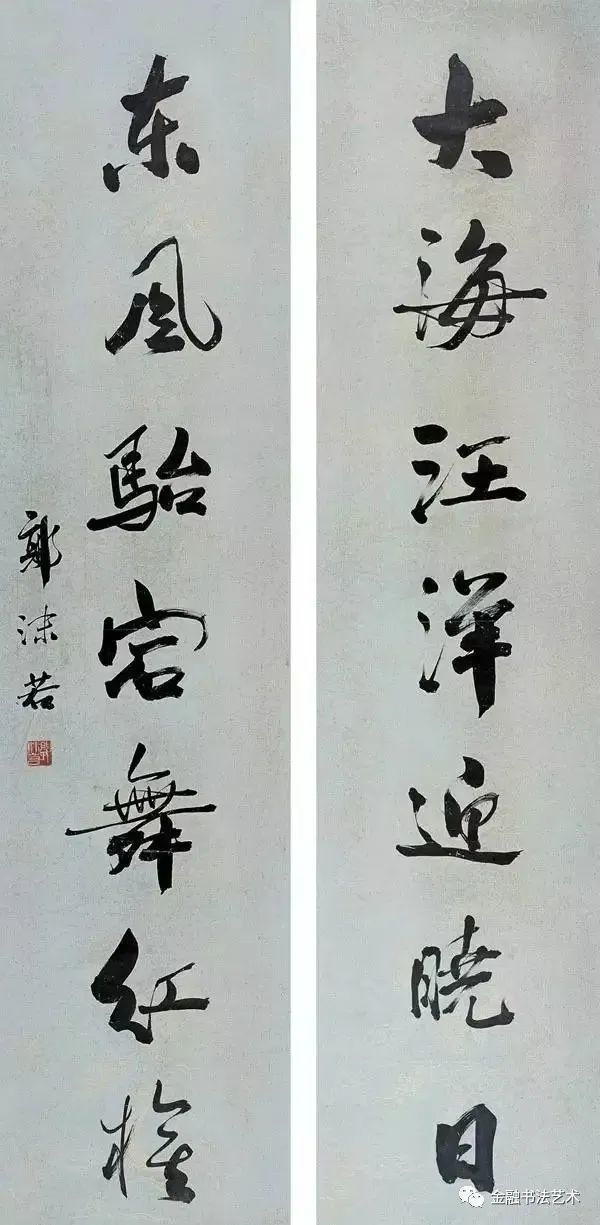 大海汪洋迎曉日
东風駘宕舞红旗
郭沫若
金融书法艺术